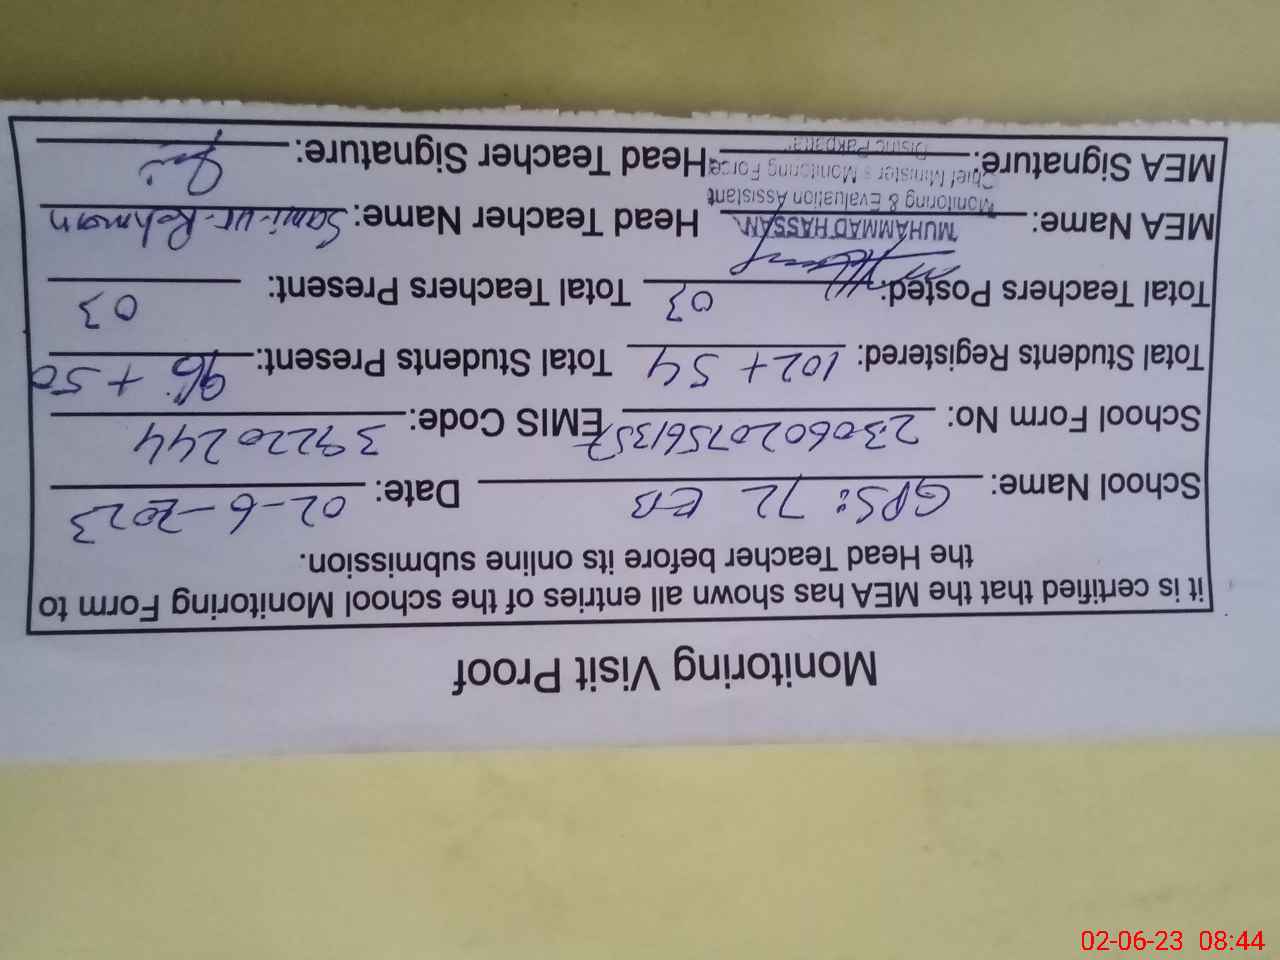 Monitoring Visit Proof
it is certified that the MEA has shown all entries of the school Monitoring Form to
the Head Teacher before its online submission.
School Name: GPS: 72 EB Date: 02-6-2023
School Form No: 23060207561357 EMIS Code: 39220244
Total Students Registered: 102 + 54 Total Students Present: 96 + 50
Total Teachers Posted: 03 Total Teachers Present: 03
MEA Name: MUHAMMAD HASSAN Head Teacher Name: Sami-ur-Rehman
Monitoring & Evaluation Assistant
Chief Minister s Monitoring Force
MEA Signature: Head Teacher Signature:
District Pakpattan
02-06-23 08:44